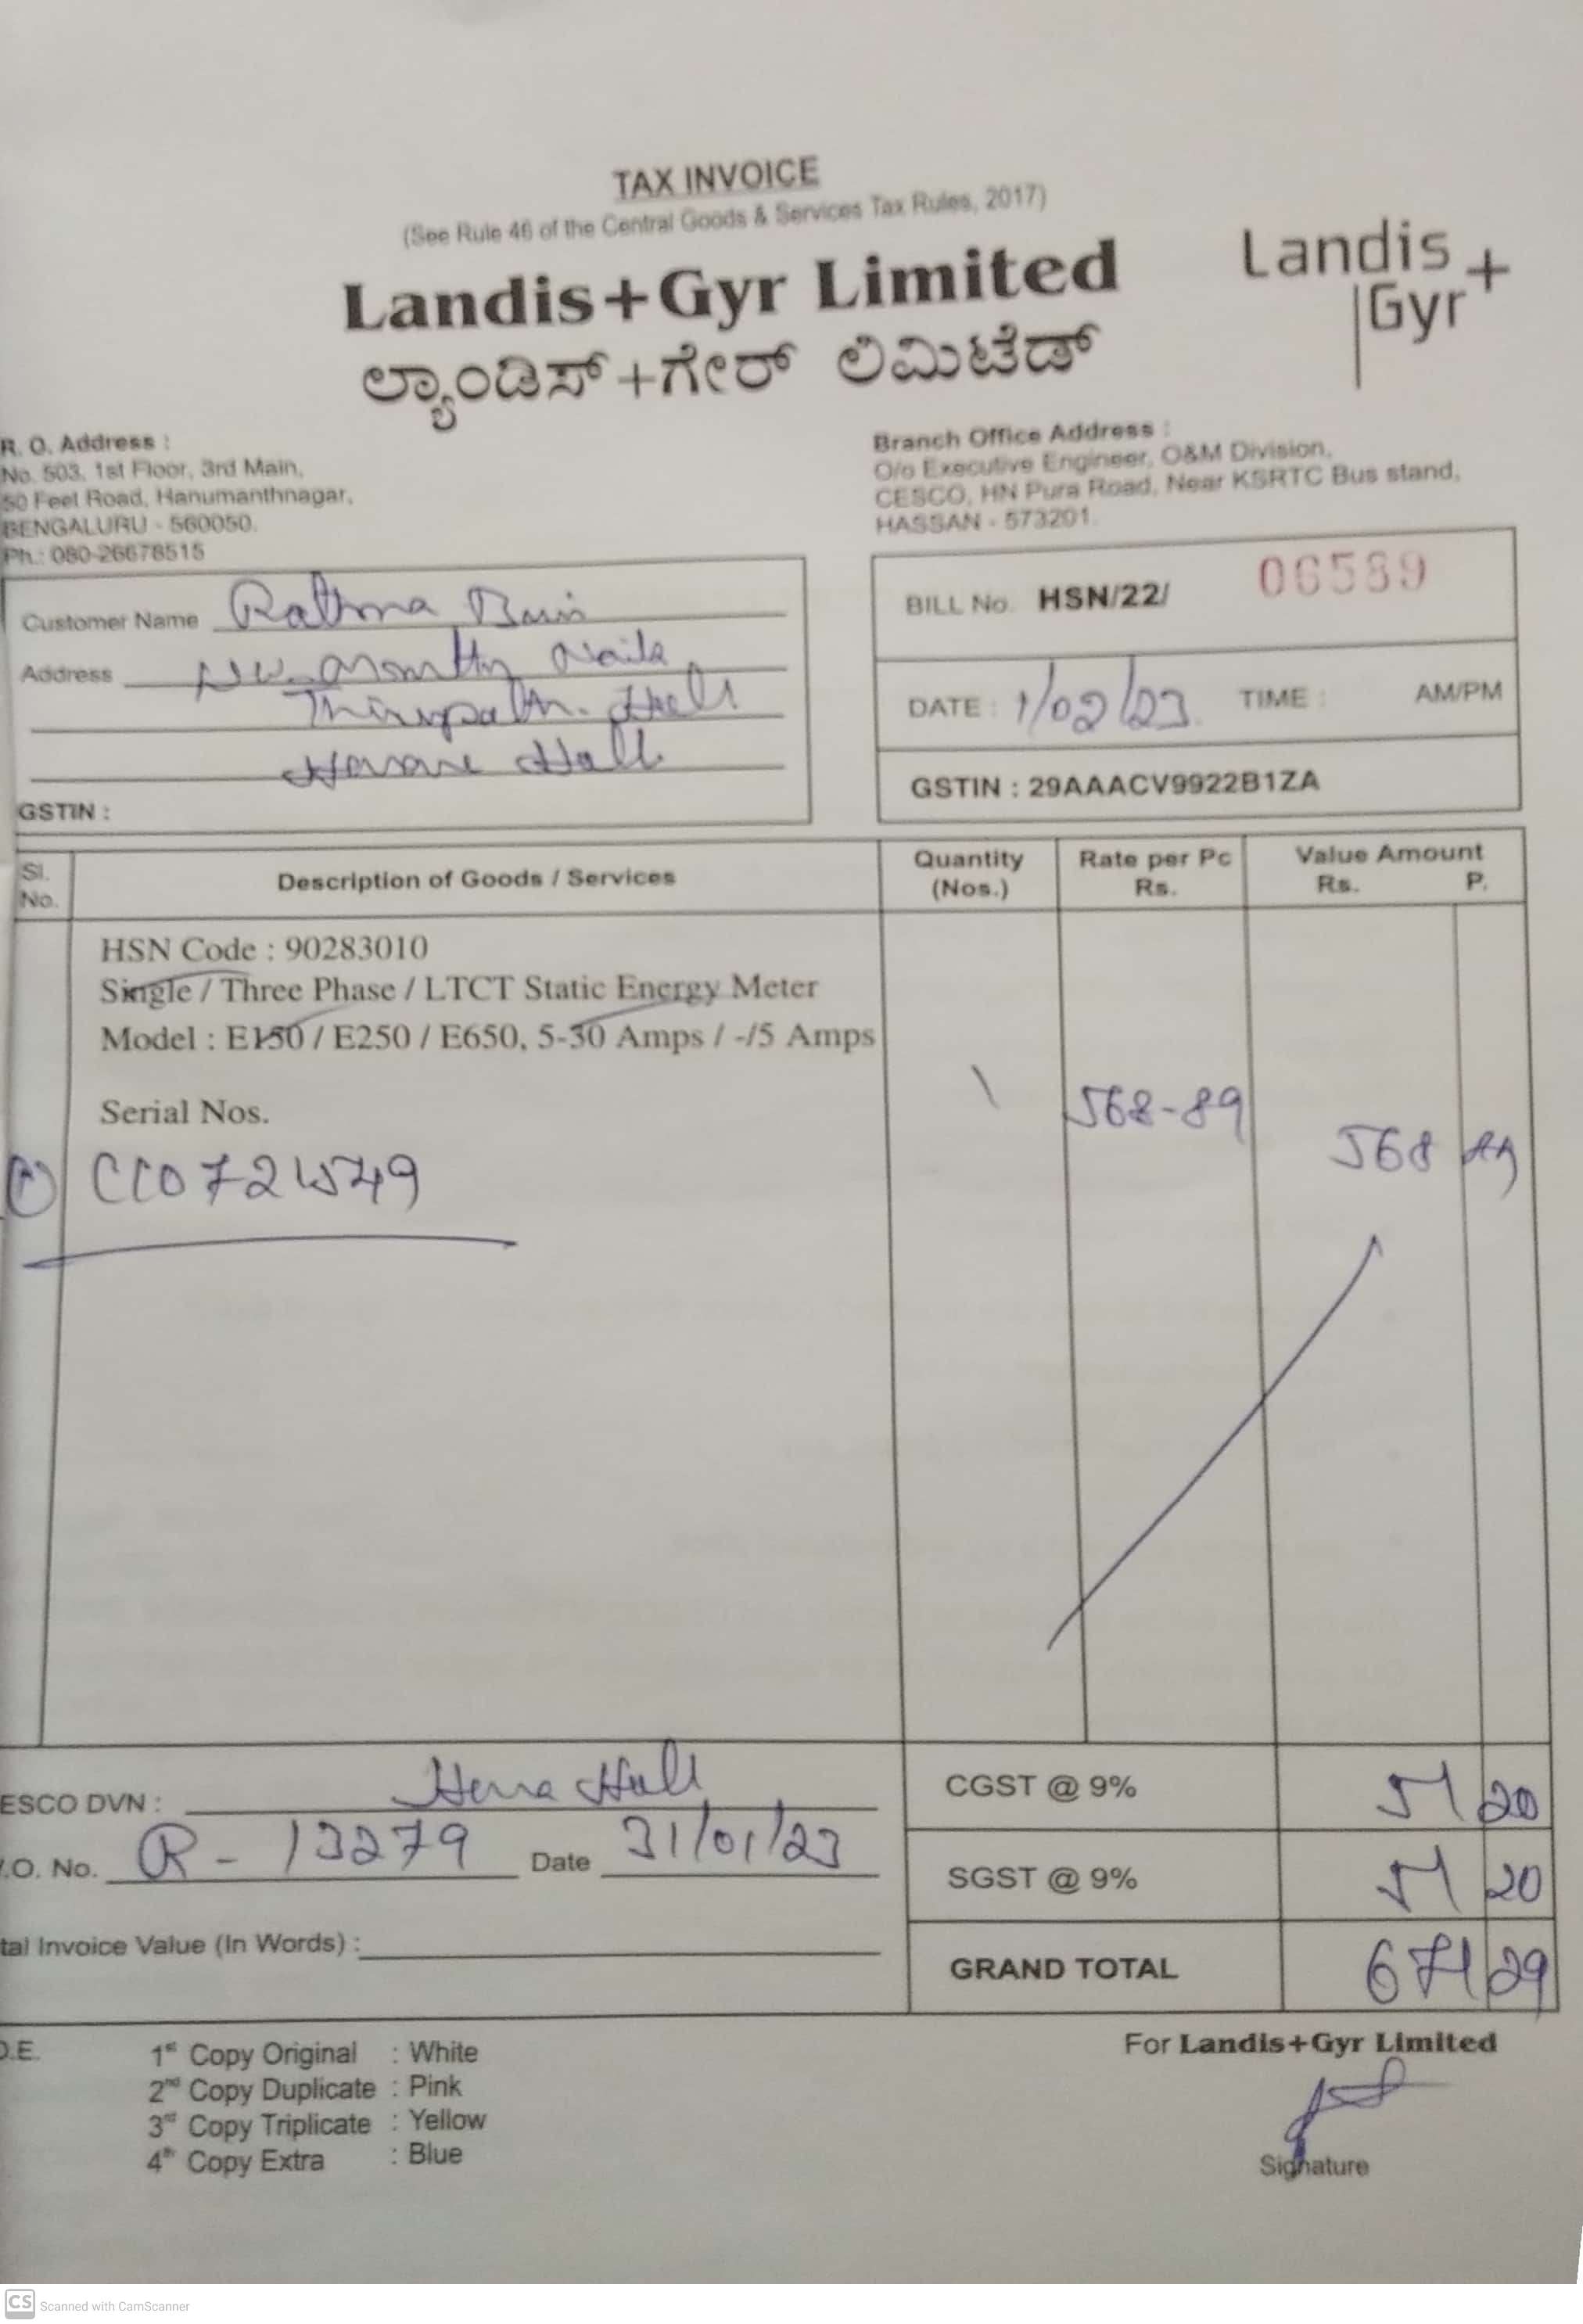 TAX INVOICE
(See Rule 46 of the Central Goods & Services Tax Rules, 2017)
Landis+Gyr Limited
ಲ್ಯಾಂಡಿಸ್+ಗೇರ್ ಲಿಮಿಟೆಡ್
Landis
Gyr+
R. O. Address :
No. 503, 1st Floor, 3rd Main,
50 Feet Road, Hanumanthnagar,
BENGALURU - 560050.
Ph.: 080-26678515
Branch Office Address :
O/o Executive Engineer, O&M Division,
CESCO, HN Pura Road, Near KSRTC Bus stand,
HASSAN - 573201.
Customer Name Rathna
Address
GSTIN :
BILL No. HSN/22/ 06589
DATE : 1/02/23 TIME : AM/PM
GSTIN : 29AAACV9922B1ZA
Sl. No. Description of Goods / Services Quantity (Nos.) Rate per Pc Rs. Value Amount Rs. P.
HSN Code : 90283010
Single / Three Phase / LTCT Static Energy Meter
Model : E150 / E250 / E650, 5-30 Amps / -/5 Amps
Serial Nos.
1 568-89 568 89
ESCO DVN :
.O. No. R - 13279 Date 31/01/23
tal Invoice Value (In Words) :
CGST @ 9% 51 20
SGST @ 9% 51 20
GRAND TOTAL 671 29
.E.
1st Copy Original : White
2nd Copy Duplicate : Pink
3rd Copy Triplicate : Yellow
4th Copy Extra : Blue
For Landis+Gyr Limited
Signature
CS Scanned with CamScanner